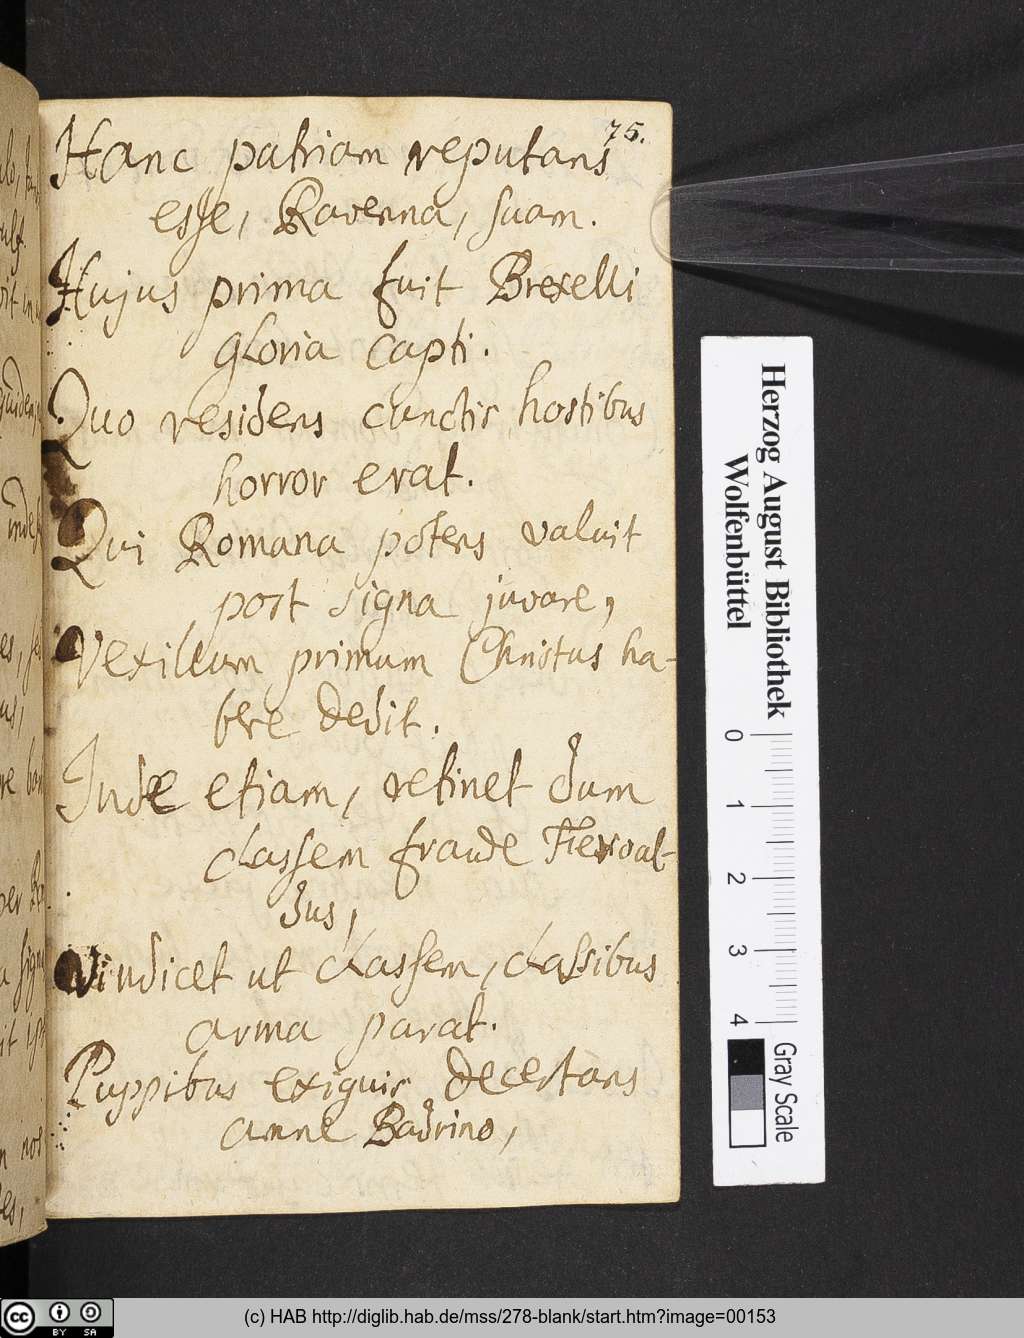 75.
Hanc patriam reputans
esse, Ravenna, suam.
Hujus prima fuit Brexelli
gloria capti.
Quo residens cunctis hostibus
horror erat.
Qui Romana potens valuit
post signa juvare,
Vexillum primum Christus ha-
bere dedit.
Inde etiam, retinet dum
classem fraude Feroal-
dus,
Vindicet ut classem, classibus
arma parat.
Puppibus exiguis decertans
amne Badrino,
Herzog August Bibliothek
Wolfenbüttel
0 1 2 3 4
Gray Scale
cc BY SA
(c) HAB http://diglib.hab.de/mss/278-blank/start.htm?image=00153